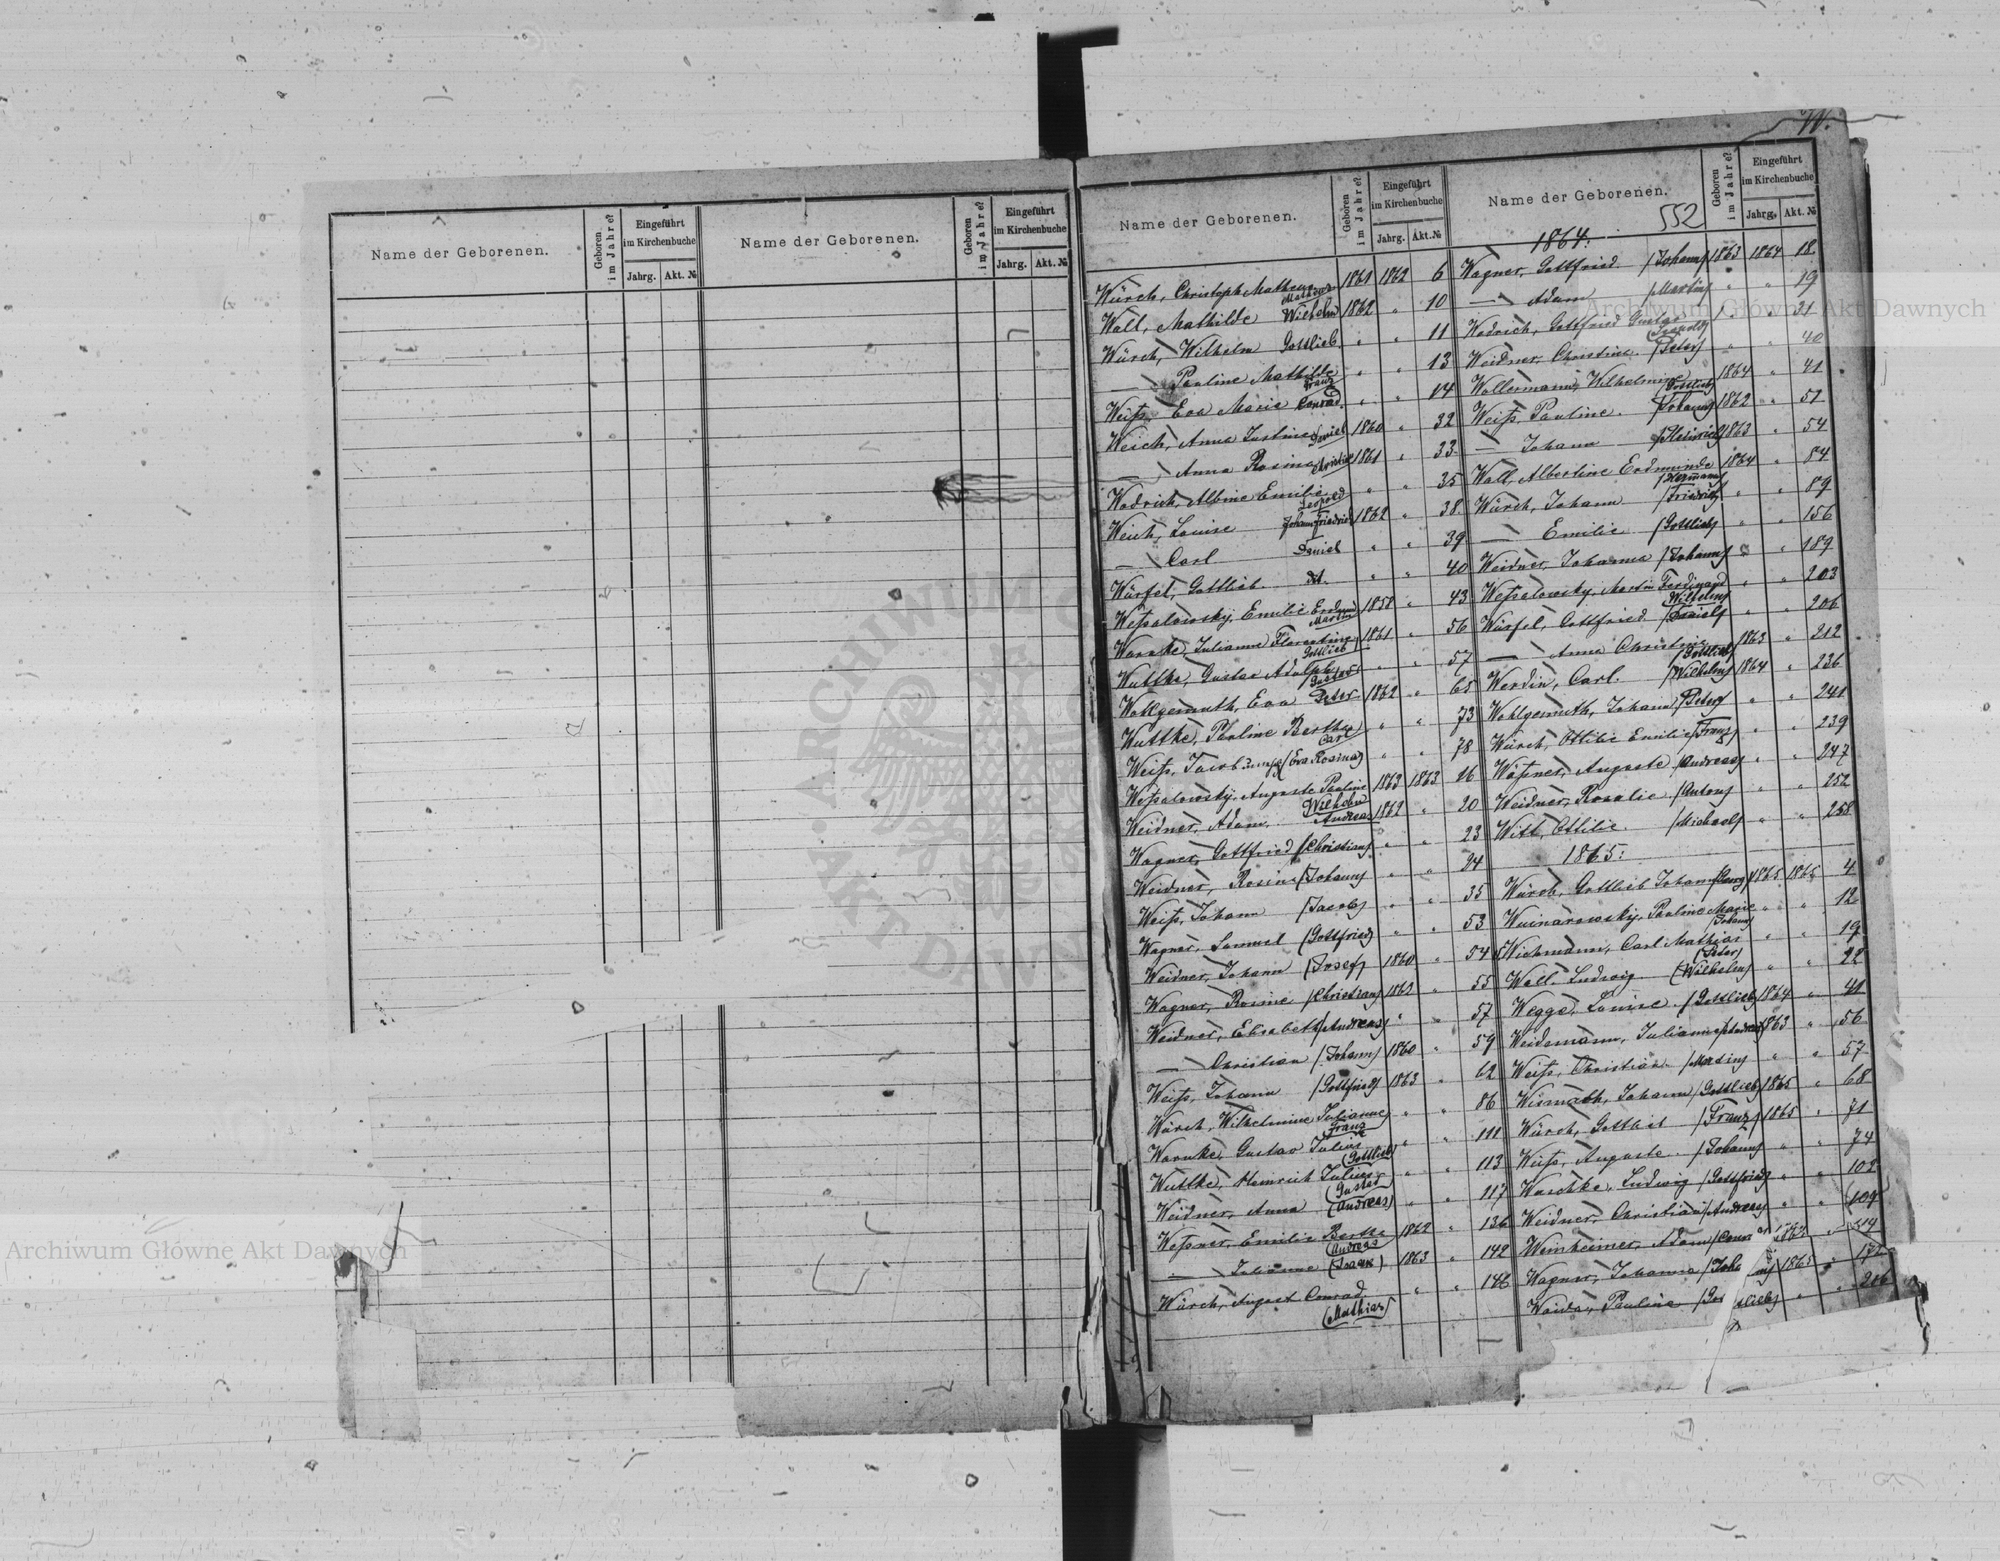 W.
Name der Geborenen.
Geboren im Jahre?
Eingeführt im Kirchenbuche
Jahrg. Akt. №
Name der Geborenen.
Geboren im Jahre?
Eingeführt im Kirchenbuche
Jahrg. Akt. №
Name der Geborenen.
Geboren im Jahre?
Eingeführt im Kirchenbuche
Jahrg. Akt. №
Würch, Christoph Matheus Matheus 1861 1862 6
Wall, Mathilde Wilhelm 1862 " 10
Würch, Wilhelm Gottlieb " " 11
— Pauline Mathilde Franz " " 13
Weiß, Eva Marie Conrad " " 14
Weich, Anna Justine Daniel 1860 " 32
— Anna Rosina Christian 1861 " 33
Wodrich, Albine Emilie Leopold " " 35
Weich, Louise Johann Friedrich 1862 " 38
— Carl Daniel " " 39
Würfel, Gottlieb dt. " " 40
Weßalowsky, Emilie Erdmu Martin 1858 " 43
Warnke, Julianne Florentine Gottlieb 1861 " 56
Wuttke, Gustav Adolph Gustav " " 57
Wohlgemuth, Eva Peter 1862 " 65
Wuttke, Pauline Bertha Carl " " 73
Weiß, Jacob (Eva Rosina) " " 78
Weßalowsky, Auguste Pauline Wilhelm 1863 1863 16
Weidner, Adam Andreas 1862 " 20
Wagner, Gottfried /Christian/ " " 23
Weidner, Rosina /Johann/ " " 24
Weiß, Johann /Jacob/ " " 35
Wagner, Samuel /Gottfried/ " " 53
Weidner, Johann /Josef/ 1860 " 54
Wagner, Rosine /Christian/ 1862 " 55
Weidner, Elisabeth /Andreas/ " " 57
— Christian /Johann/ 1860 " 59
Weiß, Johann /Gottfried/ 1863 " 62
Würch, Wilhelmine Julianne Franz " " 86
Warnke, Gustav Julius (Gottlieb) " " 111
Wuttke, Heinrich Julius (Gustav " " 113
Weidner, Anna (Andreas) " " 117
Weßner, Emilie Bertha (Andreas 1862 " 136
— Julianne (Isaak) 1863 " 142
Würch, August Conrad (Mathias) " " 146
Name der Geborenen.
552
Geboren im Jahre?
Eingeführt im Kirchenbuche
Jahrg. Akt. №
1864.
Wagner, Gottfried /Johann/ 1863 1864 18
— Adam /Martin/ " " 19
Wodrich, Gottfried Gustav Leopold " " 21
Weidner, Christine /Peter/ " " 40
Wollermann, Wilhelmine Gottlieb 1864 " 41
Weiß, Pauline /Johann/ 1862 " 51
— Johann /Heinrich/ 1863 " 54
Wall, Albertine Erdmunde /Hermann/ 1864 " 84
Würch, Johann /Friedrich/ " " 89
— Emilie /Gottlieb/ " " 156
Weidner, Johanna /Johann/ " " 189
Weßalowsky, Martin Ferdinand Wilhelm/ " " 203
Würfel, Gottfried /Daniel/ " " 206
— Anna Christine /Gottlieb/ 1863 " 212
Werdin, Carl /Wilhelm/ 1864 " 236
Wohlgemuth, Johann /Peter/ " " 241
Würch, Ottilie Emilie /Franz/ " " 239
Wößner, Auguste /Andreas/ " " 247
Weidner, Rosalie /Anton/ " " 252
Witt, Ottilie /Michael/ " " 258
1865:
Würch, Gottlieb Johann /Georg/ 1865 1865 4
Wuinarowsky, Pauline Marie /Johann/ " " 12
Wichmann, Carl Mathias (Peter) " " 19
Wall, Ludwig (Wilhelm) " " 22
Wegge, Louise /Gottlieb/ 1864 " 41
Weidemann, Julianne /Andreas/ 1863 " 56
Weiß, Christian /Martin/ " " 57
Wismath, Johann /Gottlieb/ 1865 " 68
Würch, Gottlieb /Franz/ 1865 " 71
Weiß, Auguste /Johann/ " " 74
Waschke, Ludwig /Gottfried/ " " 102
Weidner, Christian /Andreas/ " " 109
Weinheimer, Adam
Wagner, Johanna /Joh 1865 " 172
Waida, Pauline /Go ttlieb/ " " 206
Archiwum Główne Akt Dawnych
Archiwum Główne Akt Dawnych